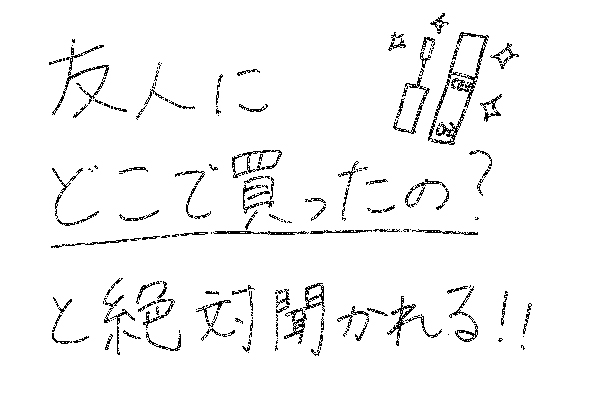 友人に
どこで買ったの?
と絶対聞かれる!!